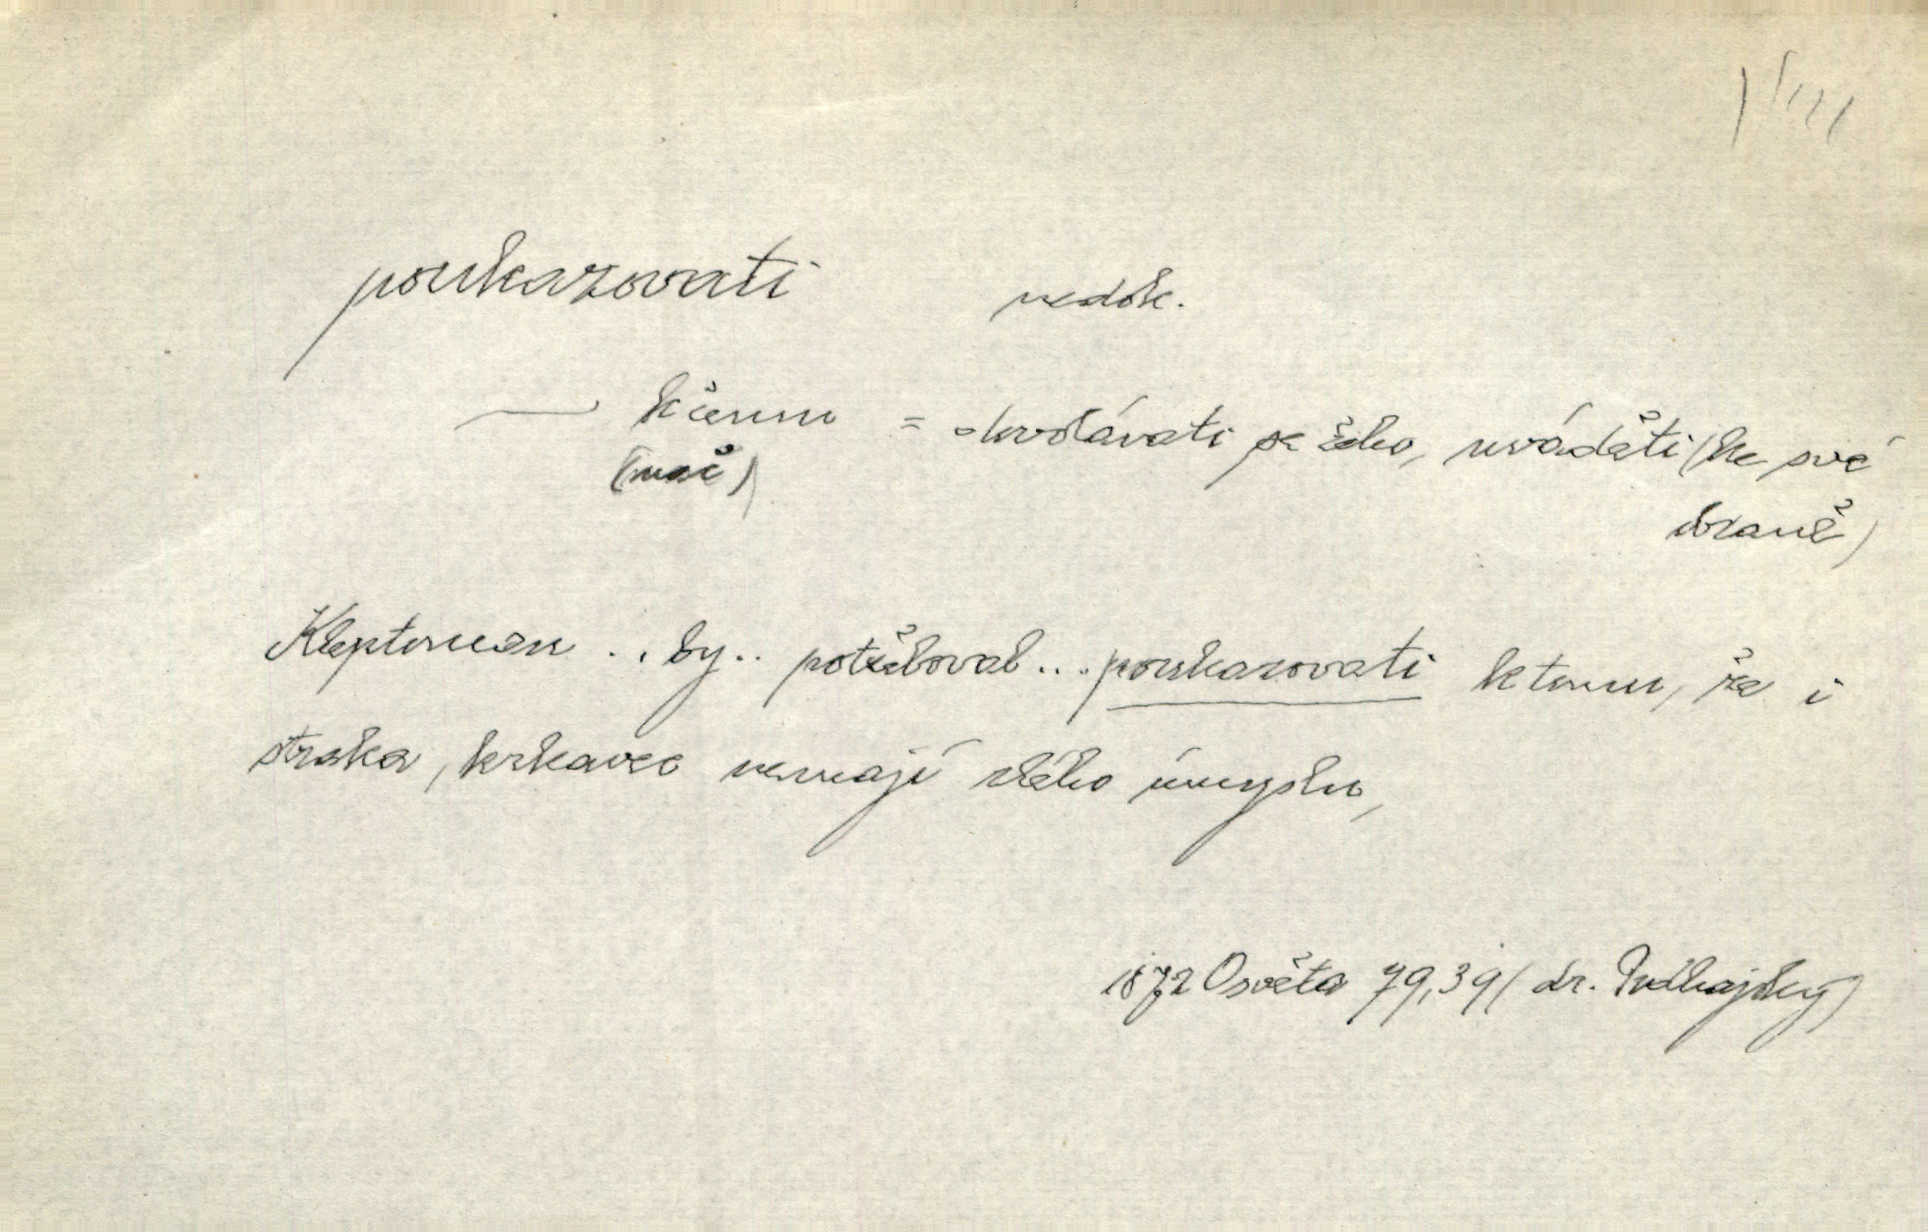 poukazovati nedok.
— k čemu = dovolávati se čeho, uváděti (ke své
(nač) obraně)
Kleptoman .. by .. potřeboval ... poukazovati k tomu, že i
straka, krkavec nemají zlého úmyslu,
1872 Osvěta 79,39 (dr. Podhajský)